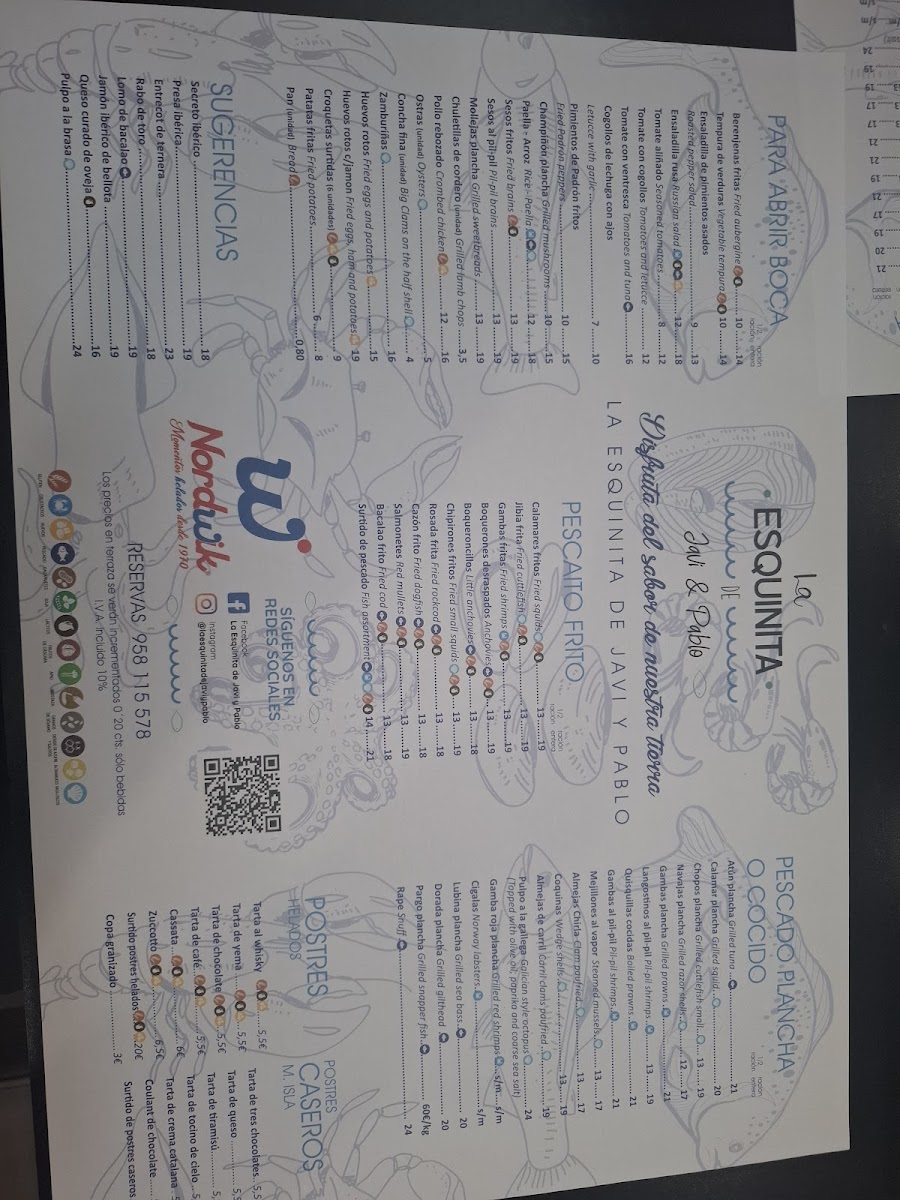 PARA ABRIR BOCA
1/2 ración ración entera
Berenjenas fritas Fried aubergine 10 14
Tempura de verduras Vegetable tempura 10 14
Ensaladilla de pimientos asados
Roasted pepper salad 9 13
Ensaladilla rusa Russian salad 12 18
Tomate aliñado Seasoned tomatoes 8 12
Tomate con cogollos Tomatoes and lettuce 12
Tomate con ventresca Tomatoes and tuna 16
Cogollos de lechuga con ajos
Letucce with garlic 7 10
Pimientos de Padrón fritos
Fried Padrón peppers 10 15
Champiñón plancha Grilled mushrooms 10 15
Paella - Arroz Rice - Paella 12 18
Sesos fritos Fried brains 13 19
Sesos al pil-pil Pil-pil brains 13 19
Mollejas plancha Grilled sweetbreads 13 19
Chuletillas de cordero (unidad) Grilled lamb chops 3,5
Pollo rebozado Crombed chicken 12 16
Ostras (unidad) Oysters 5
Concha fina (unidad) Big Clams on the half shell 4
Zamburiñas 16
Huevos rotos Fried eggs and potatoes 15
Huevos rotos c/jamon Fried eggs, ham and potatoes 19
Croquetas surtidas (6 unidades) 9
Patatas fritas Fried potatoes 6 8
Pan (unidad) Bread 0,80
SUGERENCIAS
Secreto ibérico 18
Presa ibérica 19
Entrecot de ternera 23
Rabo de toro 18
Lomo de bacalao 19
Jamón ibérico de bellota 19
Queso curado de oveja 16
Pulpo a la brasa 24
La
ESQUINITA
DE
Javi & Pablo
Disfruta del sabor de nuestra tierra
LA ESQUINITA DE JAVI Y PABLO
PESCAITO FRITO
1/2 ración ración entera
Calamares fritos Fried squids 13 19
Jibia frita Fried cuttlefish 13 19
Gambas fritas Fried shrimps 13 19
Boquerones despapados Anchovies 13 19
Boqueroncillos Little anchovies 13 18
Chipirones fritos Fried small squids 13 19
Rosada frita Fried rockcod 13 18
Cazón frito Fried dogfish 13 18
Salmonetes Red mullets 13 19
Bacalao frito Fried cod 13 18
Surtido de pescado Fish assortment 14 21
Nordwik
Momentos helados desde 1970
SÍGUENOS EN
REDES SOCIALES
Facebook
La Esquinita de Javi y Pablo
Instagram
@laesquinitadejaviypablo
RESERVAS 958 115 578
Los precios en terraza se verán incrementados 0´20 cts. sólo bebidas
I.V.A. incluido 10%
PESCADO PLANCHA
O COCIDO
1/2 ración ración entera
Atún plancha Grilled tuna 21
Calamar plancha Grilled squid 20
Chopos plancha Grilled cuttlefish small 13 19
Navajas plancha Grilled razor shells 12 17
Gambas plancha Grilled prawns 21
Langostinos al pil-pil Pil-pil shrimps 13 19
Quisquillas cocidas Boiled prawns 21
Gambas al pil-pil Pil-pil shrimps 21
Mejillones al vapor Steamed mussels 13 17
Almejas Chirla Clam paufried 13 17
Coquinas Wedge shells 13 19
Almejas de carril Carril clams paufried 19
Pulpo a la gallega Galician style octopus 24
(Topped with olive oil, paprika and coarse sea salt)
Gamba roja plancha Grilled red shrimps s/m s/m
Cigalas Norway lobsters s/m
Lubina plancha Grilled sea bass 20
Dorada plancha Grilled gilthead 20
Pargo plancha Grilled snapper fish 60€/kg
Rape Snuff 24
POSTRES
HELADOS
Tarta al whisky 5,5€
Tarta de yema 5,5€
Tarta de chocolate 5,5€
Tarta de café 5,5€
Cassata 6€
Zuccotto 6,5€
Surtido postres helados 20€
Copa granizado 3€
POSTRES
CASEROS
M. ISLA
Tarta de tres chocolates 5,5
Tarta de queso 5,5
Tarta de tiramisú 5,
Tarta de tocino de cielo 5
Tarta de crema catalana 5
Coulant de chocolate
Surtido de postres caseros